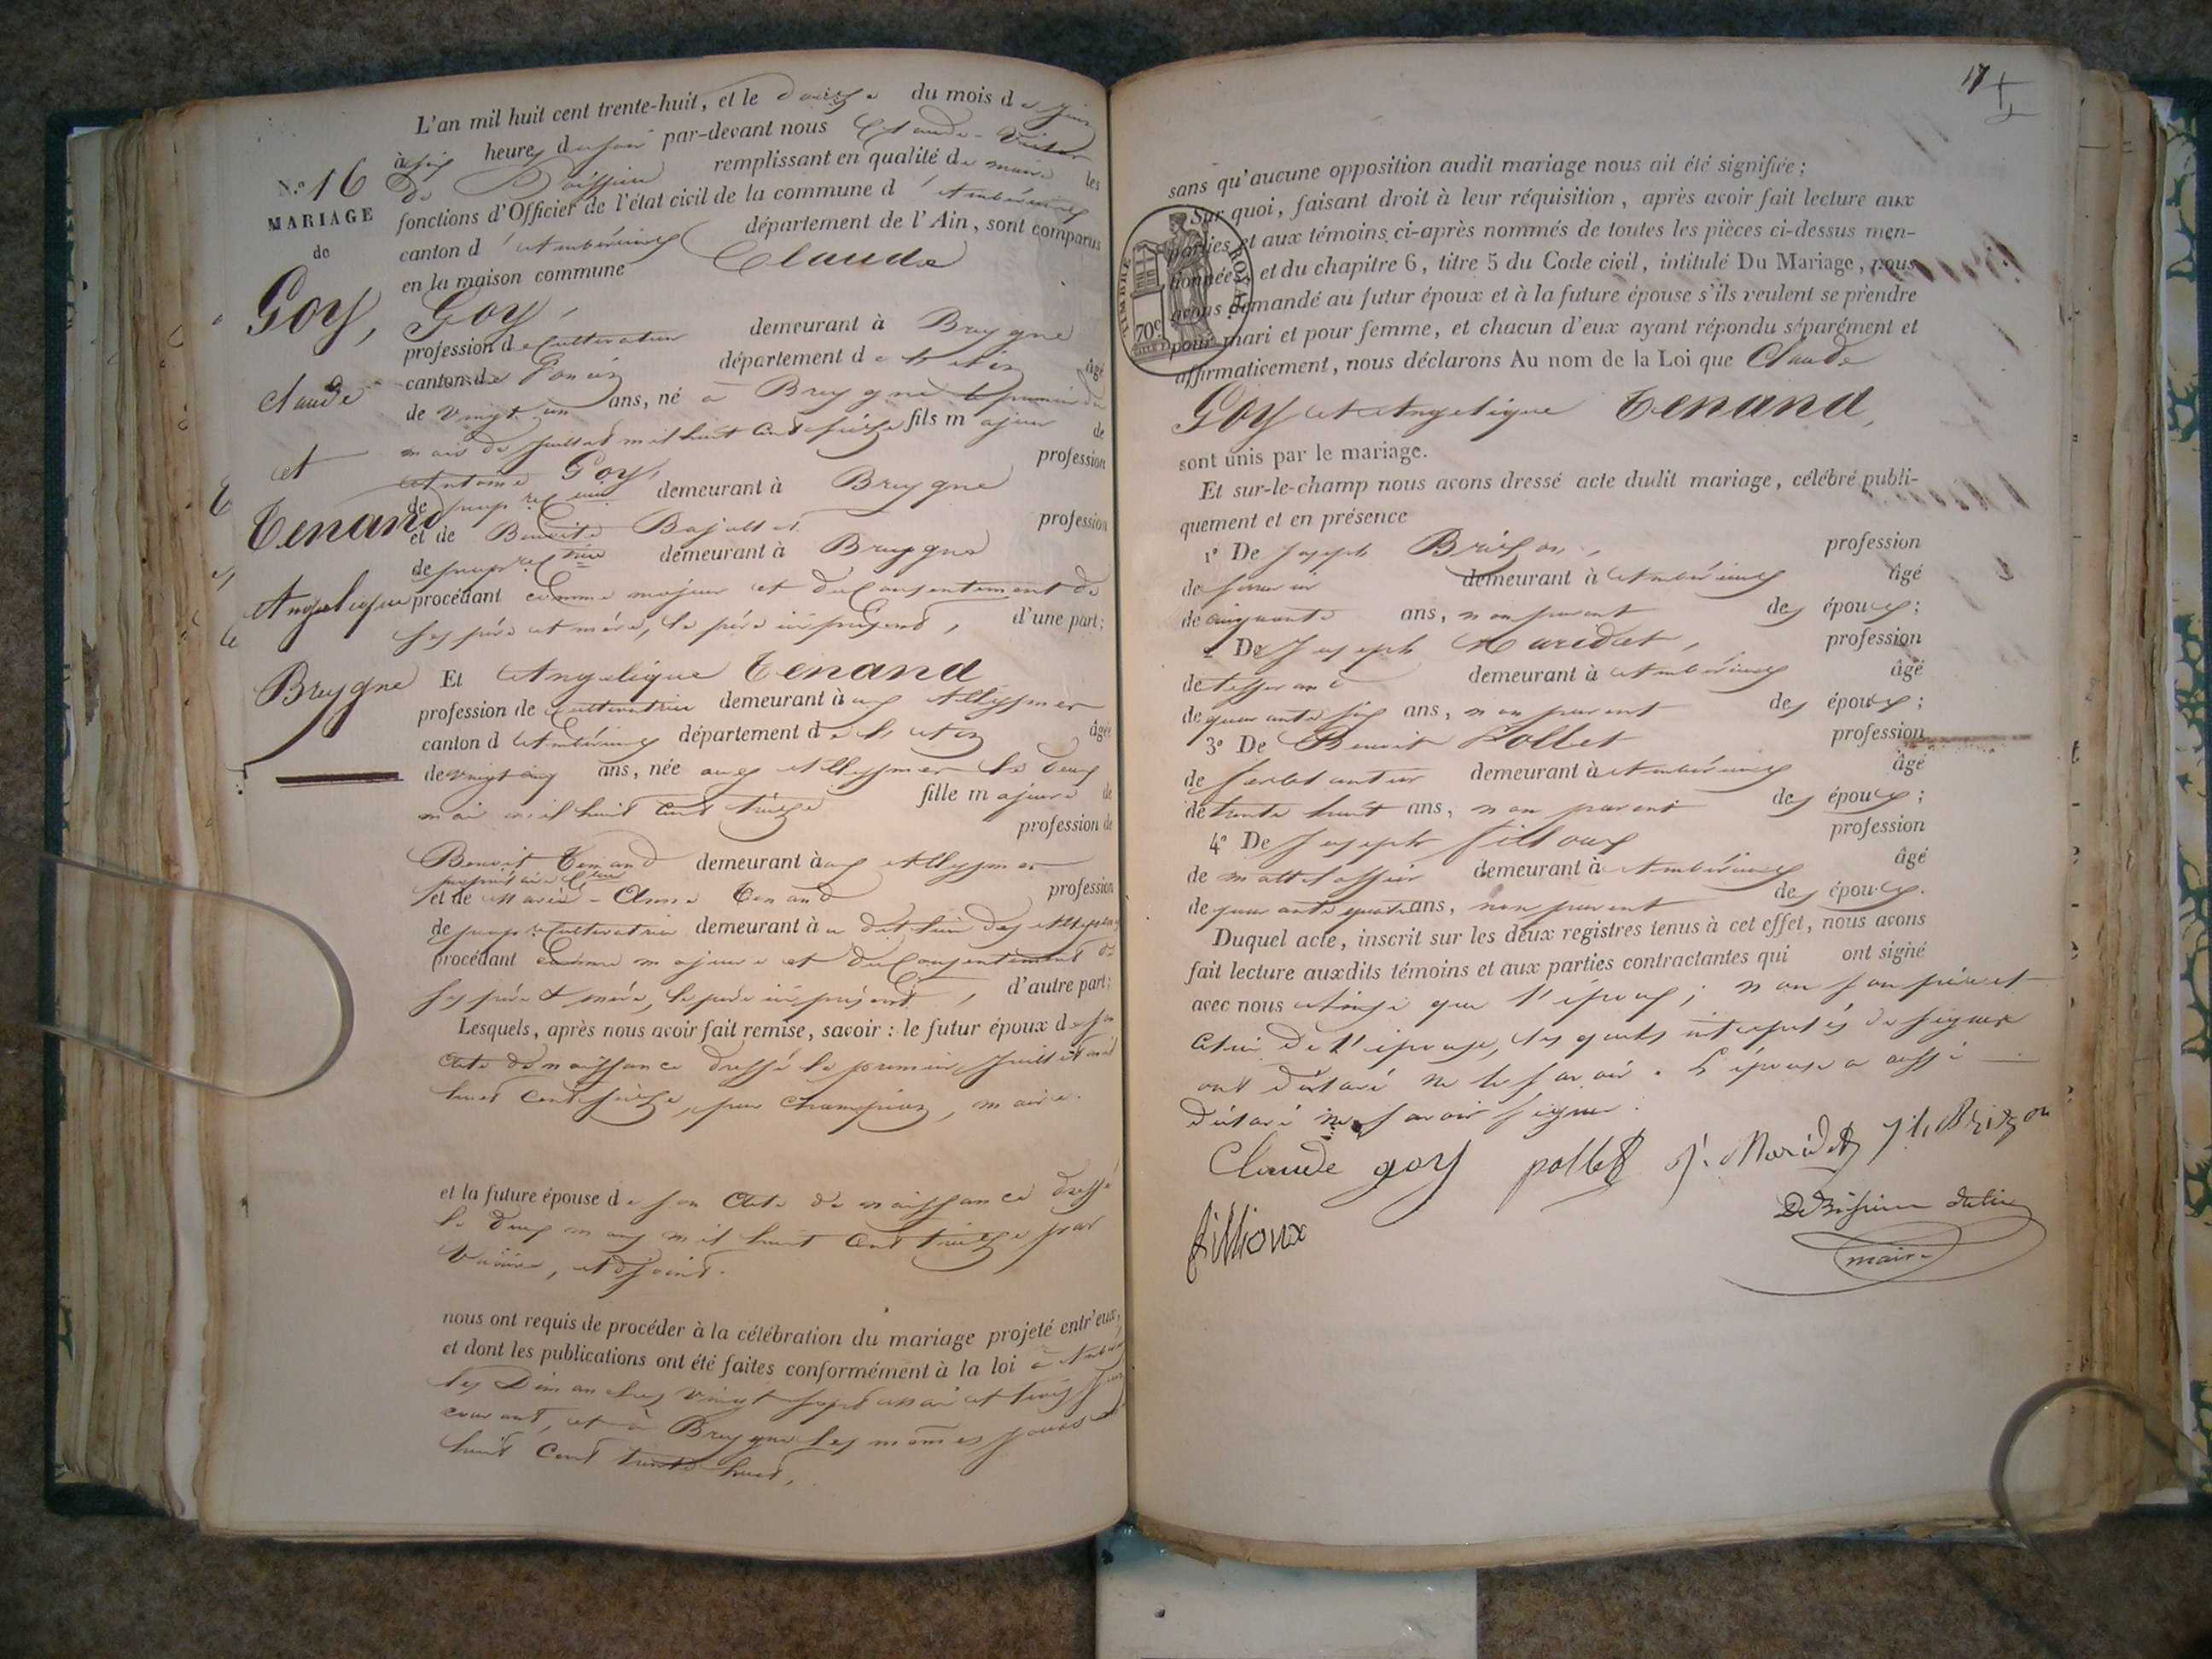 L'an mil huit cent trente-huit, et le douze du mois de juin
à six heures du soir par-devant nous Claude-Victor
De Boissieu remplissant en qualité de maire les
fonctions d'Officier de l'état civil de la commune d'Ambérieux
canton d'Ambérieux département de l'Ain, sont comparus
en la maison commune Claude
Goy,
profession de cultivateur demeurant à Breygne
canton de département de l'Ain âgé
de vingt un ans, né à Breygne le premier du
mois de juillet mil huit cent seize fils majeur de
Antoine Goy, profession
de demeurant à Breygne
et de Benoite profession
de demeurant à Breygne
procédant comme majeur et du consentement de
ses père et mère, le père ici présent, d'une part;
Et Angélique Tenand
profession de cultivatrice demeurant à aux Alleysmes
canton d'Ambérieux département de l'Ain âgée
de vingt cinq ans, née aux Alleysmes le deux
mai mil huit cent treize fille majeure de
profession de
Benoit Tenand demeurant à aux Alleysmes
propriétaire
et de Marie-Anne Tenand profession
de cultivatrice demeurant à u dit lieu des Alleysmes
procédant comme majeure et du consentement de
ses père et mère, le père ici présent, d'autre part;
Lesquels, après nous avoir fait remise, savoir: le futur époux de son
acte de naissance dressé le premier juillet mil
huit cent seize, par, maire.
et la future épouse de son acte de naissance dressé
le deux may mil huit cent treize par
, adjoint.
nous ont requis de procéder à la célébration du mariage projeté entr'eux,
et dont les publications ont été faites conformément à la loi à
les Dimanches vingt sept mai et trois juin
courant, et à Breygne les mêmes jours
huit cent trente huit,
N.o 16
MARIAGE
de
Goy,
Claude
et
Tenand
Angélique
Breygne
17
sans qu'aucune opposition audit mariage nous ait été signifiée;
Sur quoi, faisant droit à leur réquisition, après avoir fait lecture aux
parties et aux témoins ci-après nommés de toutes les pièces ci-dessus men-
tionnées et du chapitre 6, titre 5 du Code civil, intitulé Du Mariage, nous
avons demandé au futur époux et à la future épouse s'ils veulent se prendre
pour mari et pour femme, et chacun d'eux ayant répondu séparément et
affirmativement, nous déclarons Au nom de la Loi que Claude
Goy et Angélique Tenand,
sont unis par le mariage.
Et sur-le-champ nous avons dressé acte dudit mariage, célébré publi-
quement et en présence
1º De Joseph Brison, profession
de demeurant à Ambérieux âgé
de cinquante ans, non parent des époux;
2 De Joseph Maridet, profession
de tisserand demeurant à Ambérieux âgé
de quarante six ans, non parent des époux;
3º De Benoit Pollet profession
de ferblantier demeurant à Ambérieux âgé
de trente huit ans, non parent des époux;
4º De Joseph Fillioux profession
de mattelassier demeurant à Ambérieux âgé
de quarante quatre ans, non parent des époux.
Duquel acte, inscrit sur les deux registres tenus à cet effet, nous avons
fait lecture auxdits témoins et aux parties contractantes qui ont signé
avec nous Ainsi que l'époux; non son père et
celui de l'épouse, lesquels interpelés de signer
ont déclaré ne le savoir. L'épouse a aussi
déclaré ne savoir signer.
Claude goy pollet J. Maridet Brizon
fillioux
De Boissieu
maire
TIMBRE ROYAL
70c